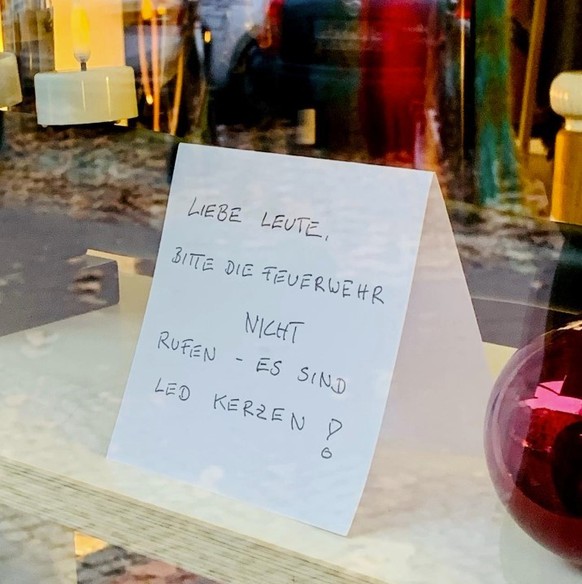 LIEBE LEUTE,
BITTE DIE FEUERWEHR
NICHT
RUFEN - ES SIND
LED KERZEN !